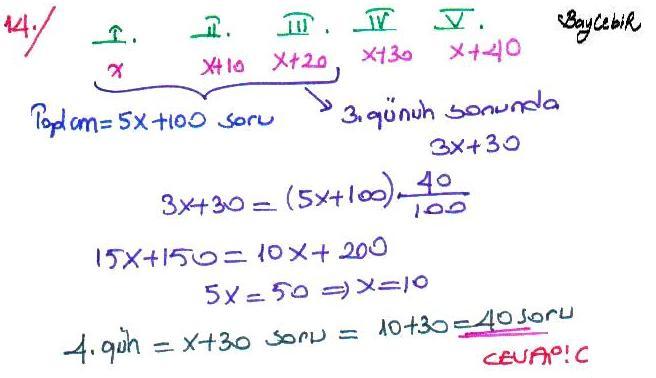 14./ I. II. III. IV V. BayCebiR
x x+10 x+20 x+30 x+40
Toplam=5x+100 soru 3.günün sonunda
3x+30
3x+30=(5x+100).40/100
15x+150=10x+200
5x=50⇒x=10
4.gün=x+30 soru=10+30=40soru
CEVAP!C